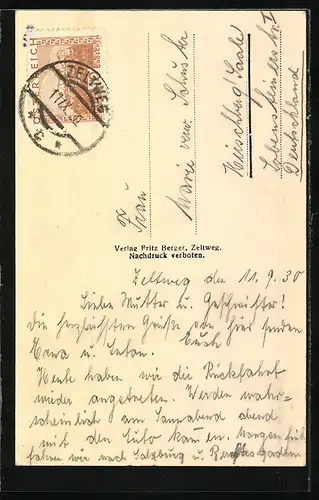 ZELTWEG
Frau
Marie verw. Schuster
Hirschberg/Saale
Lobensteinerstr. I
Deutschland
Verlag Fritz Berger, Zeltweg.
Nachdruck verboten.
Zeltweg den 11.9.30
Liebe Mutter u. Geschwister!
Die herzlichsten Grüße von hier senden
Euch
u. Anton.
Heute haben wir die Rückfahrt
wieder angetreten. Werden wahr-
scheinlich am Sonnabend abend
mit dem Auto kommen. Morgen früh
fahren wir nach Salzburg u. Berchtesgaden